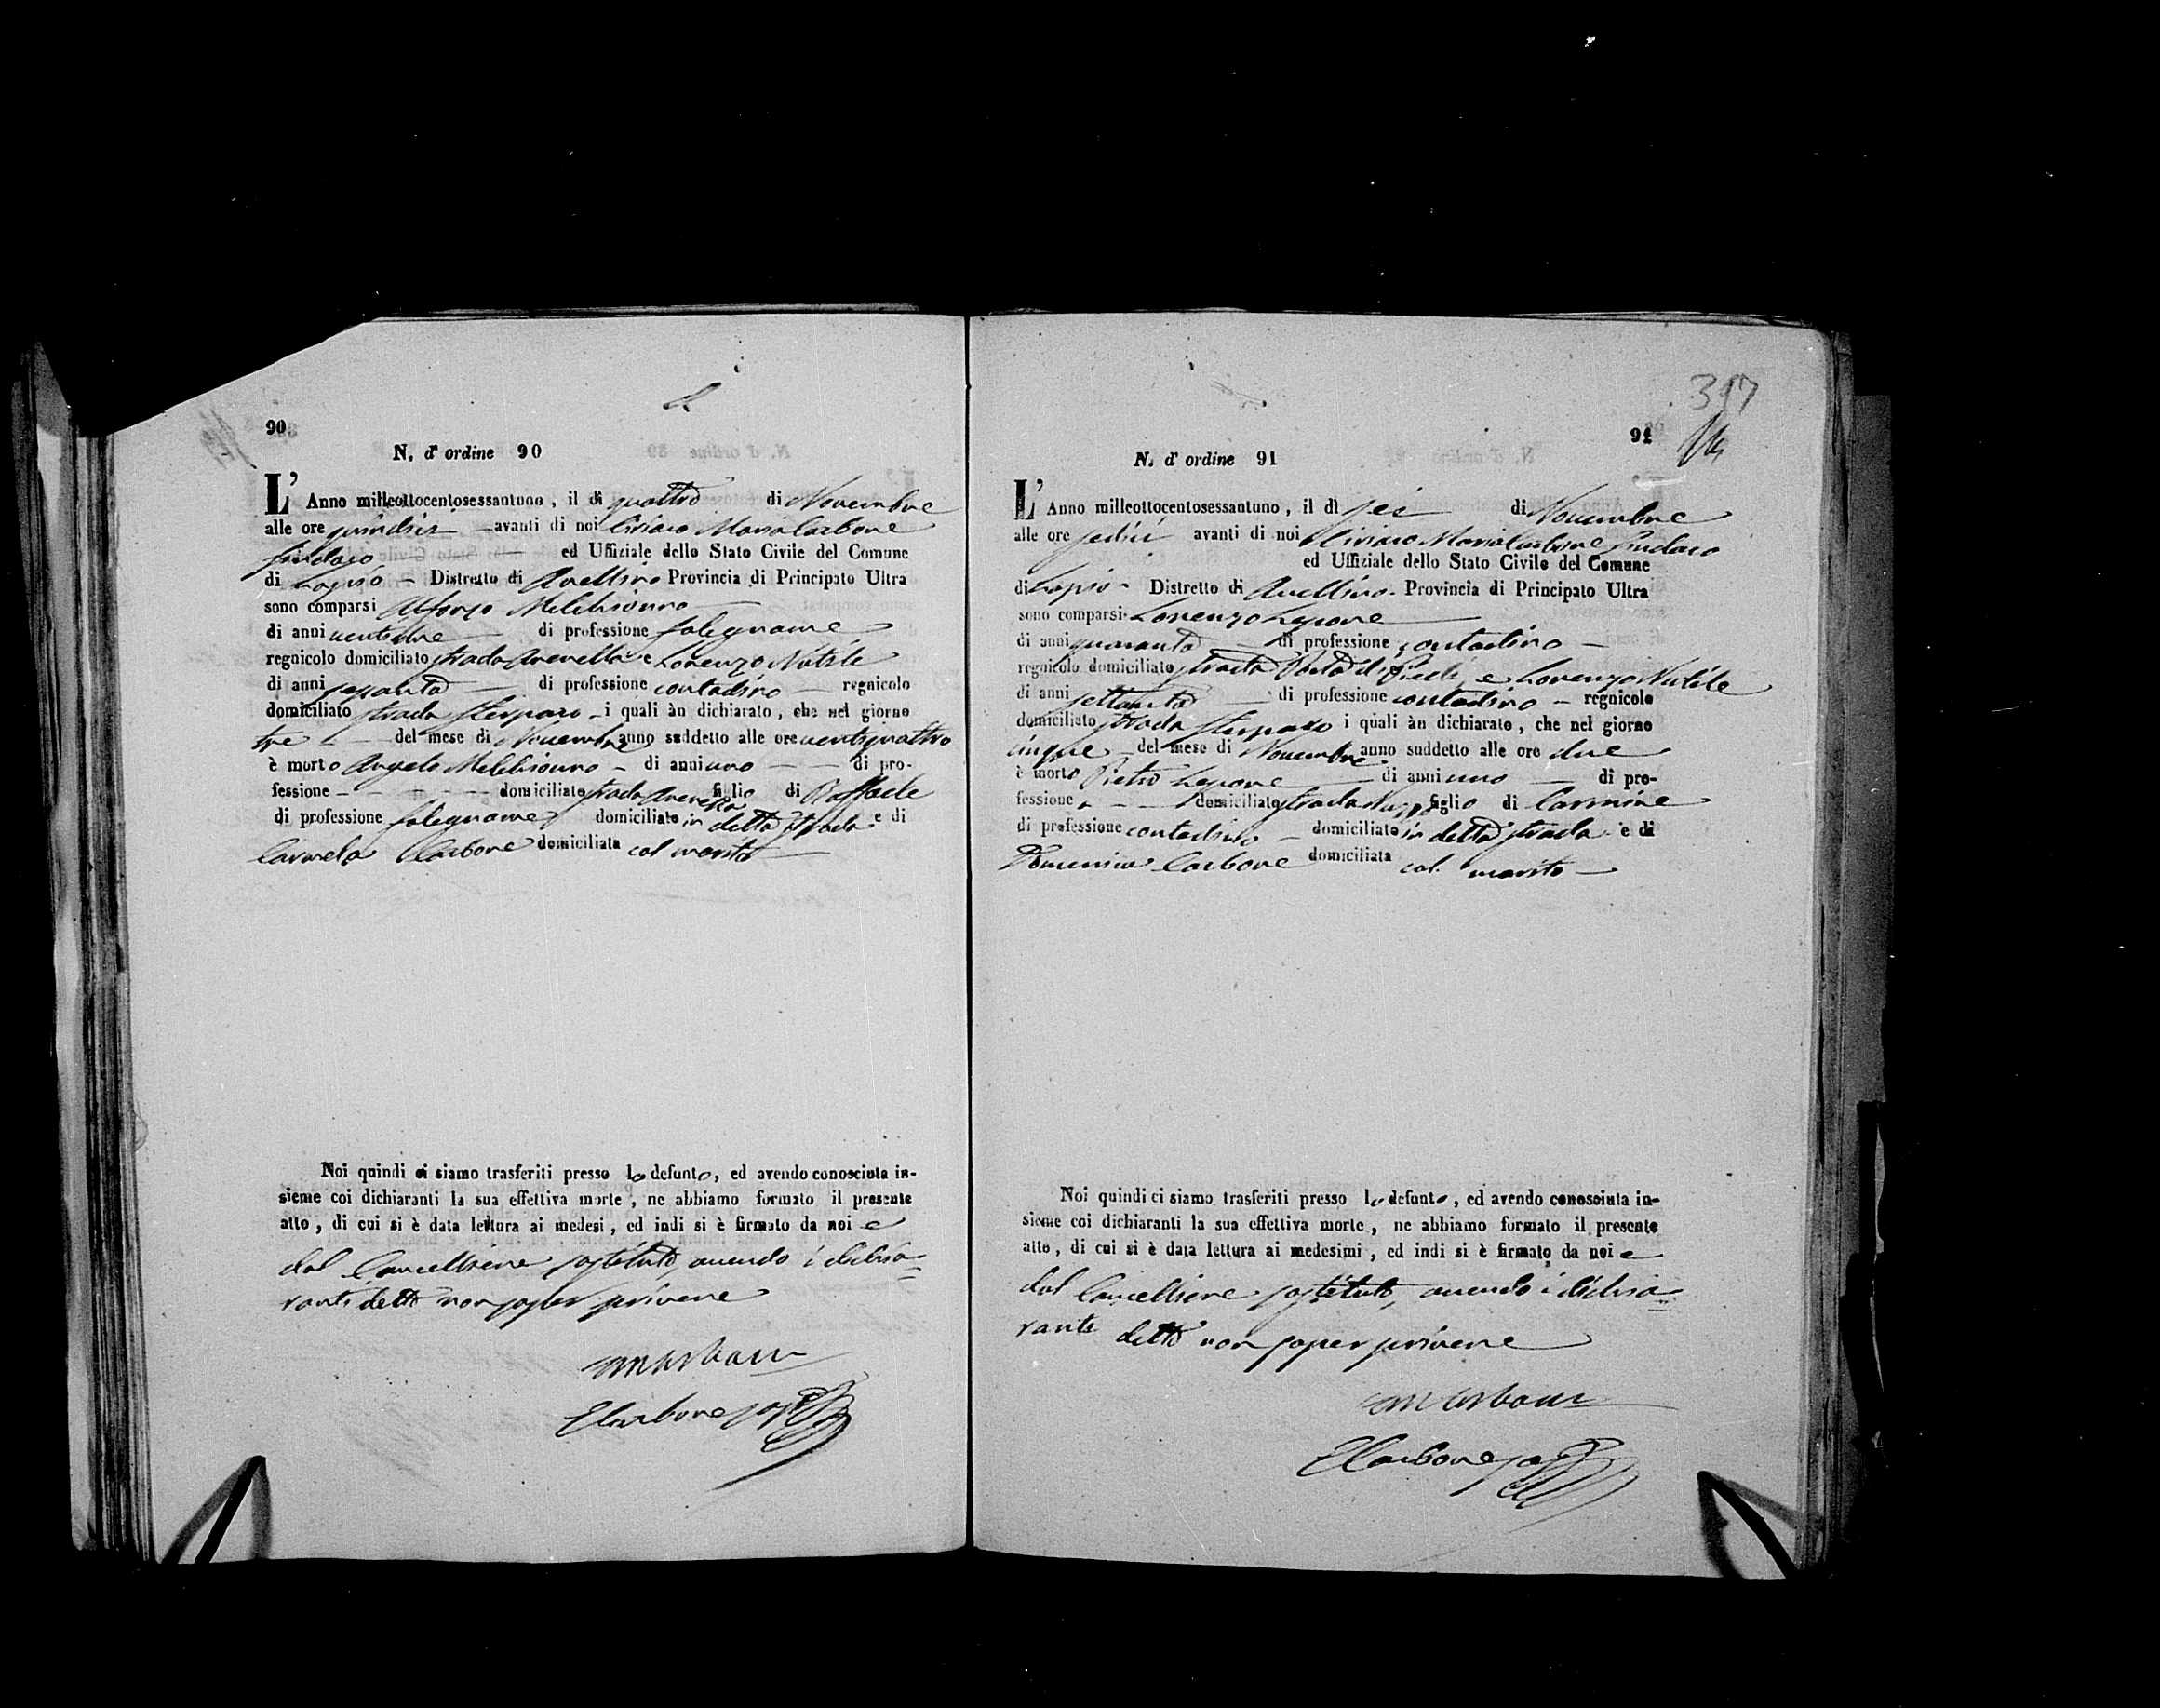 90
N. d' ordine 90
L' Anno milleottocentosessantuno, il dì quattro di Novembre
alle ore quindici avanti di noi Ciriaco Maria Carbone
Sindaco ed Uffiziale dello Stato Civile del Comune
di Lapio Distretto di Avellino Provincia di Principato Ultra
sono comparsi Alfonso Melchionno
di anni di professione falegname
regnicolo domiciliato strada e Lorenzo Nutile
di anni sessanta di professione contadino regnicolo
domiciliato strada i quali àn dichiarato, che nel giorno
tre del mese di Novembre anno suddetto alle ore ventiquattro
è morto Angelo Melchionno di anni uno di pro-
fessione domiciliato strada figlio di Raffaele
di professione falegname domiciliato in detta strada e di
Carmela Carbone domiciliata col marito
Noi quindi ci siamo trasferiti presso lo defunto, ed avendo conosciuta in-
sieme coi dichiaranti la sua effettiva morte, ne abbiamo formato il presente
atto, di cui si è data lettura ai medesi, ed indi si è firmato da noi e
dal Cancelliere sostituto, avendo i dichia=
ranti detto non saper scrivere
Carbone
317
91
N. d' ordine 91
L' Anno milleottocentosessantuno, il dì sei di Novembre
alle ore sedici avanti di noi Ciriaco Maria Carbone Sindaco
ed Uffiziale dello Stato Civile del Comune
di Lapio Distretto di Avellino Provincia di Principato Ultra
sono comparsi Lorenzo Lepore
di anni quaranta di professione contadino
regnicolo domiciliato strada Porta di e Lorenzo Nutile
di anni settanta di professione contadino regnicolo
domiciliato strada i quali àn dichiarato, che nel giorno
cinque del mese di Novembre anno suddetto alle ore due
è morto Pietro Lepore di anni uno di pro-
fessione domiciliato strada figlio di Carmine
di professione contadino domiciliato in detta strada e di
Domenica Carbone domiciliata col marito
Noi quindi ci siamo trasferiti presso lo defunto, ed avendo conosciuta in-
sieme coi dichiaranti la sua effettiva morte, ne abbiamo formato il presente
atto, di cui si è data lettura ai medesimi, ed indi si è firmato da noi e
dal Cancelliere sostituto, avendo i dichia=
ranti detto non saper scrivere
Carbone